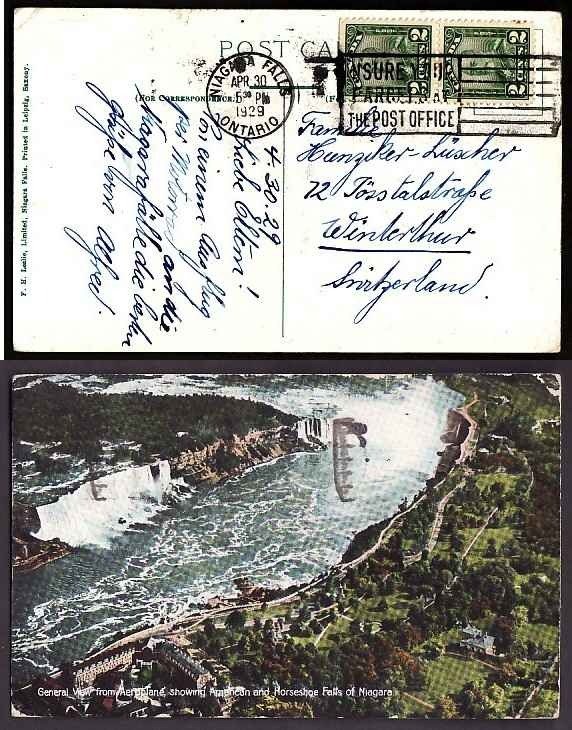 POST CA
(For Correspondence.)
(F
NIAGARA FALLS
APR 30
5 30 PM
1929
ONTARIO
2 2
THE POST OFFICE
F. H. Leslie, Limited, Niagara Falls. Printed in Leipzig, Saxony.
4.30.29
Liebe Eltern!
Von einem Ausflug
an die
Niagarafälle die besten
Grüße von Alfred.
Familie
Hunziker-Lüscher
72 Tösstalstraße
Winterthur
Switzerland.
General View from Aeroplane, showing American and Horseshoe Falls of Niagara